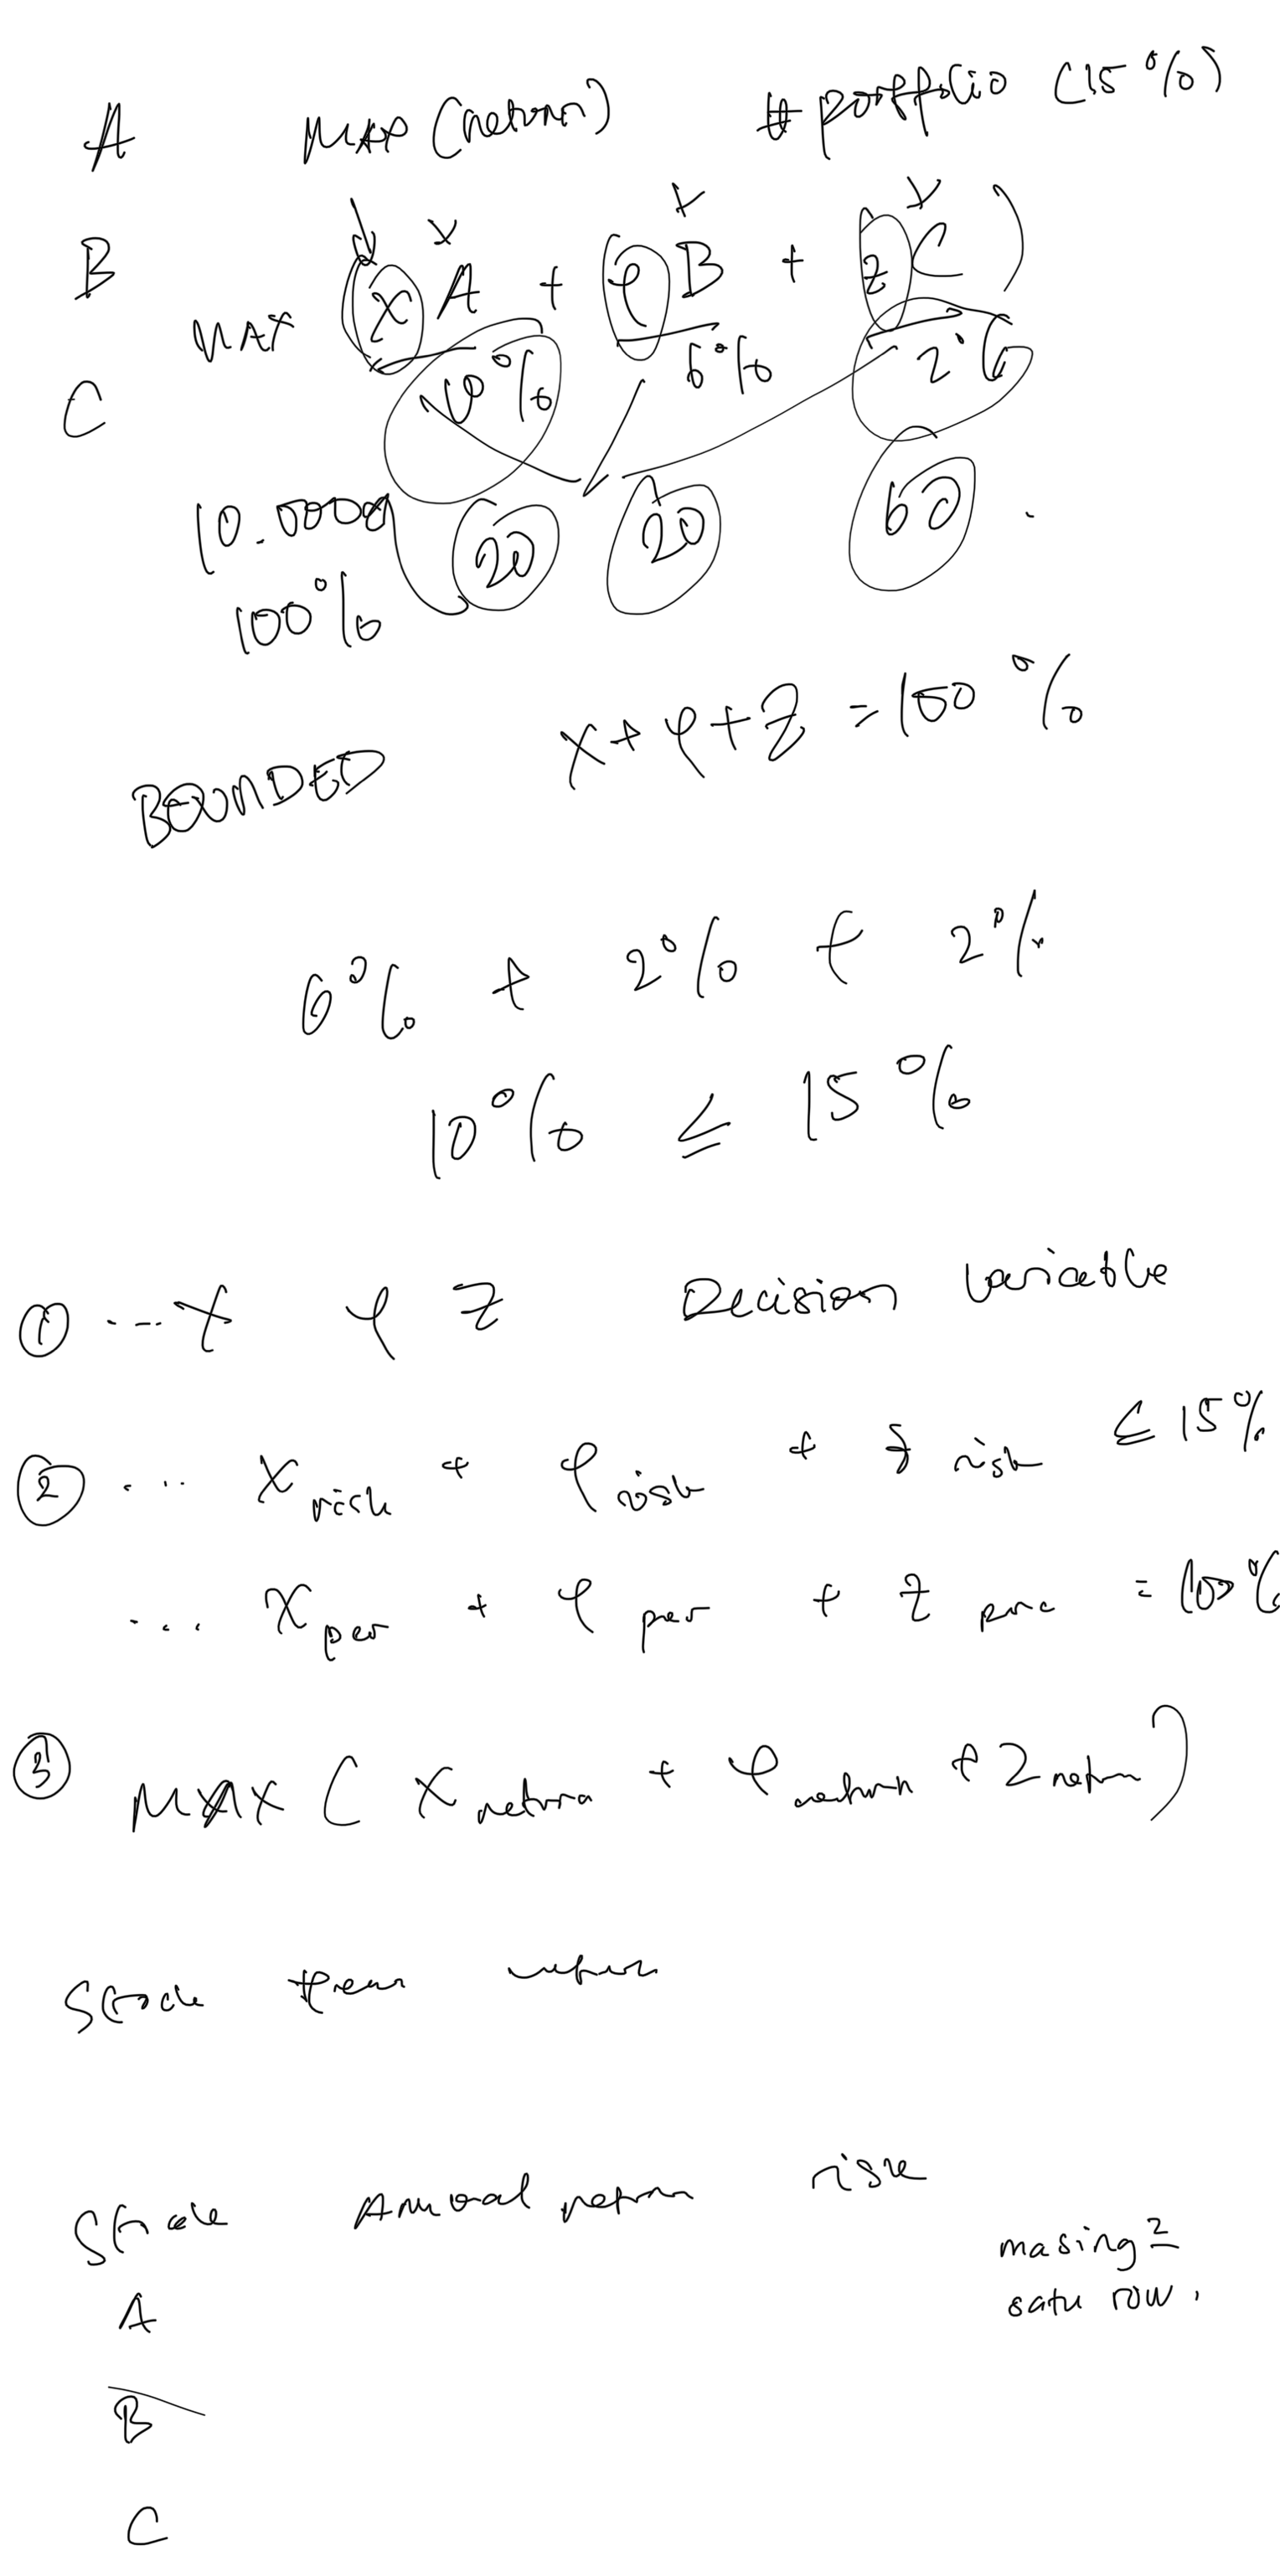 A MAX (return) # portfolio (15%)
B
MAX x A + y B + z C )
C 10% 6% 2%
10.0000 20 20 60
100%
x + y + z = 100%
BOUNDED
6% + 2% + 2%
10% ≤ 15%
① ... x y z Decision variable
② ... x risk + y risk + z risk ≤ 15%
... x per + y per + z = 100%
③ MAX ( x return + y return + z return )
Stock
Stock Annual return risk
masing2
satu row.
A
B
C